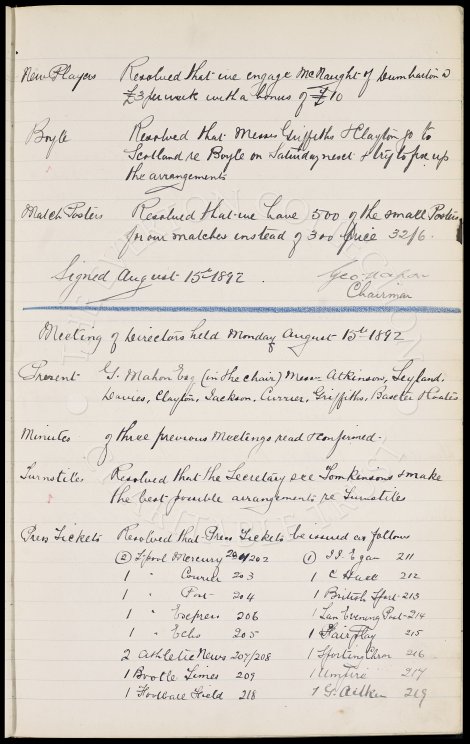 New Players Resolved that we engage McNaught of Dumbarton @
£3 per week with a bonus of £10
Boyle Resolved that Messrs Griffiths & Clayton go to
Scotland re Boyle on Saturday next & try to fix up
the arrangements
Match Posters Resolved that we have 500 of the small Posters
for our matches instead of 300 price 32/6.
Signed August 15th 1892 Geo Mahon
Chairman
Meeting of Directors held Monday August 15th 1892
Present G. Mahon Esq (in the chair) Messrs Atkinson, Leyland,
Davies, Clayton, Jackson, Currier, Griffiths, Baxter & Coates
Minutes of three previous Meetings read & confirmed.
Turnstiles Resolved that the Secretary see Tomkinsons & make
the best possible arrangements re Turnstiles
Press Tickets Resolved that Press Tickets be issued as follows
2 L'pool Mercury 201/202 1 J J Egan 211
1 " Courier 203 1 C Hall 212
1 " Post 204 1 British Sport 213
1 " Express 206 1 Evening Post 214
1 " Echo 205 1 Fair Play 215
2 Athletic News 207/208 1 Sporting Chron 216
1 Bootle Times 209 1 Umpire 217
1 Football Field 218 1 G. Aitken 219